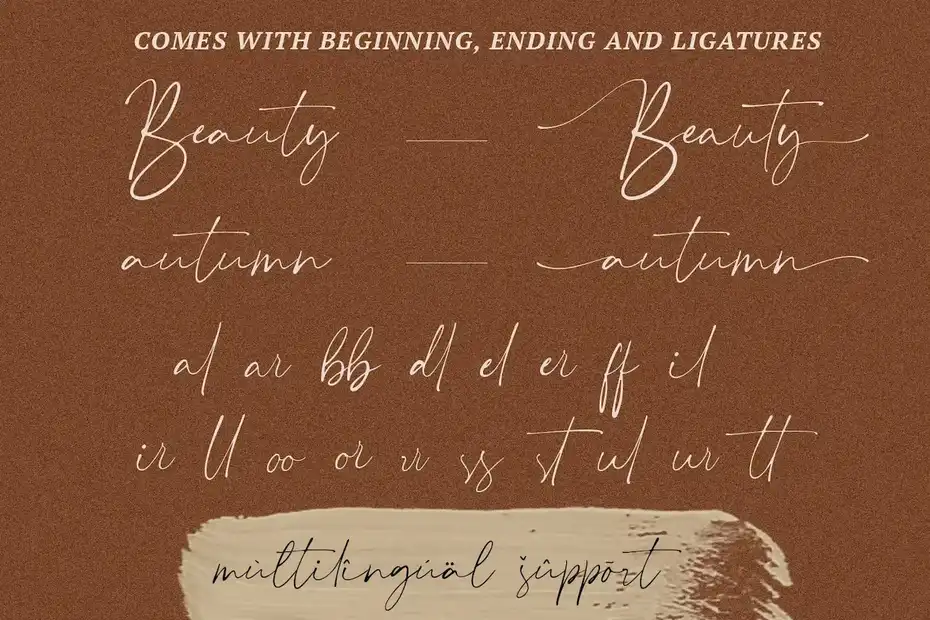 COMES WITH BEGINNING, ENDING AND LIGATURES
Beauty — Beauty
autumn — autumn
al ar bb dl el er ff il
ir ll oo or rr ss st ul ur tt
mùltilîngúäl šûppõrt